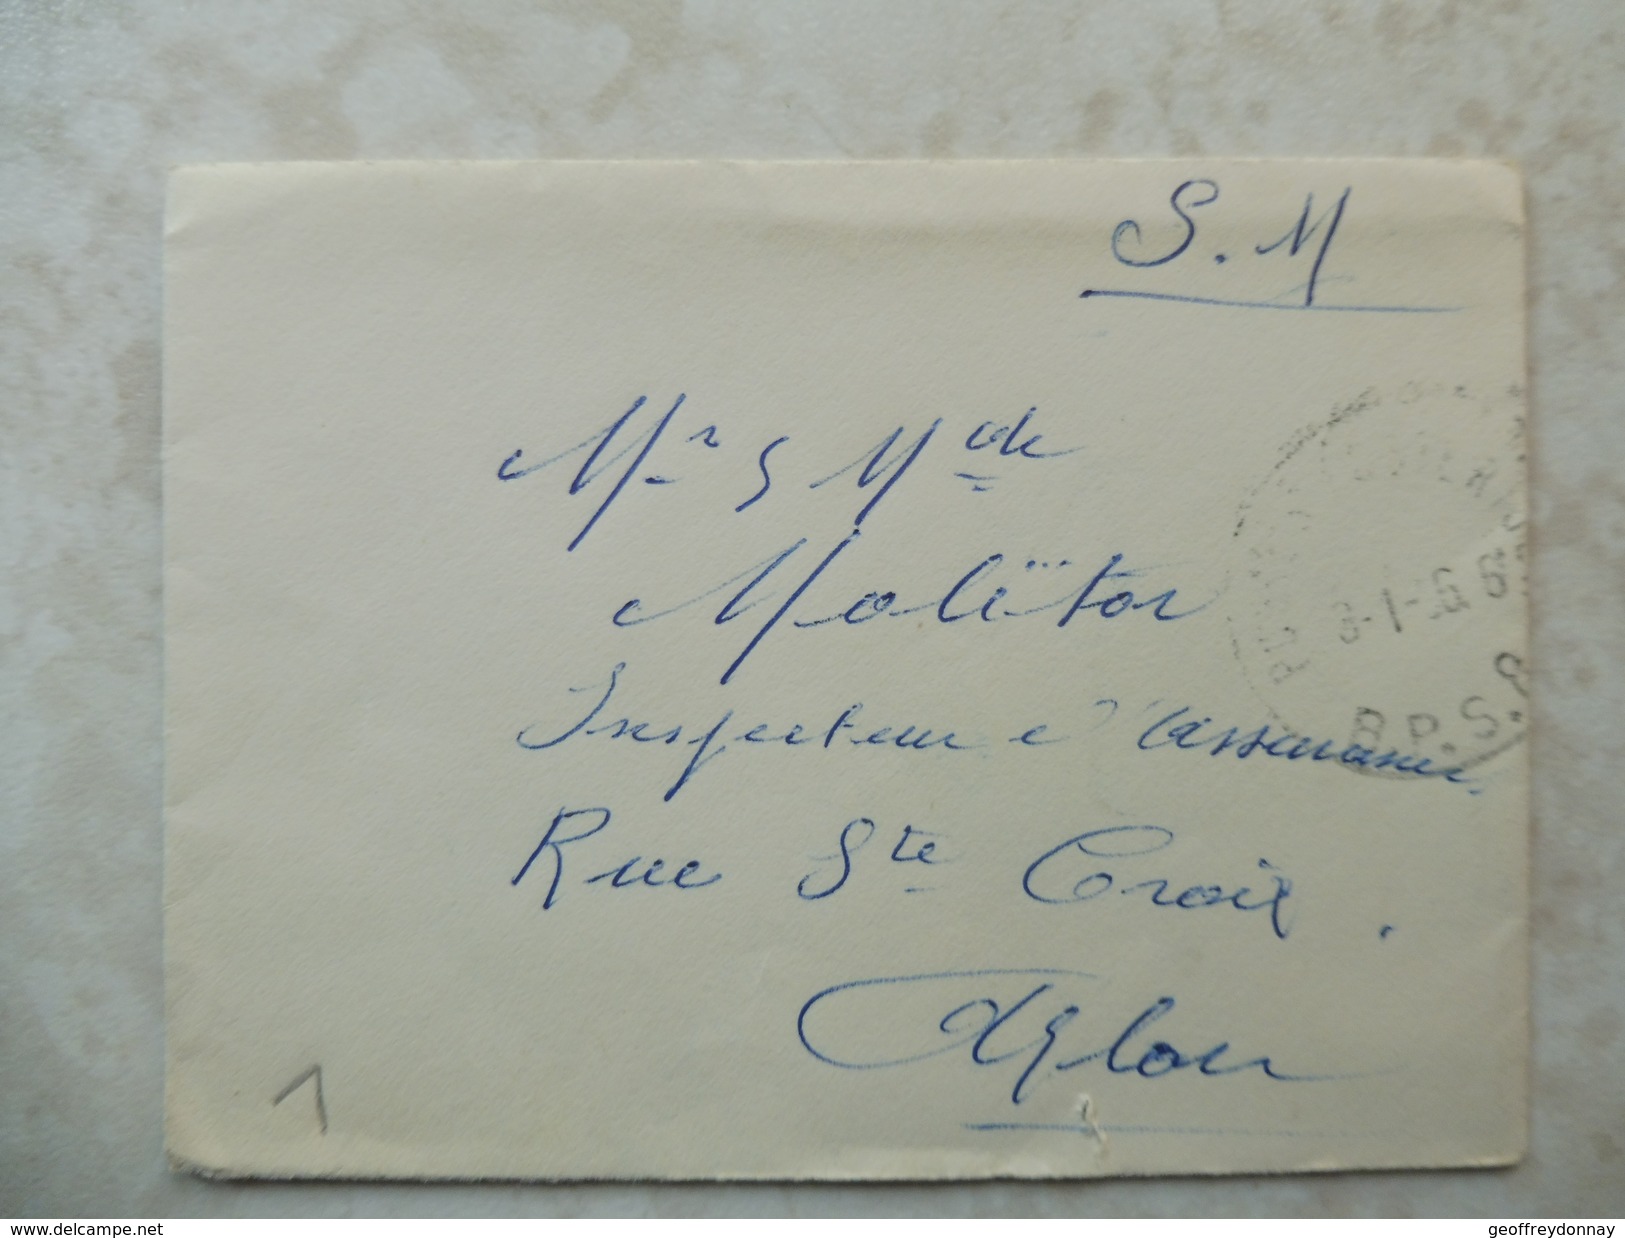 S. M
Mr & Mde
Moliïtor
Inspecteur d'assurances
Rue Ste Croix.
Arlon
8-1-
B.P.S.
1
www.delcampe.net
geoffreydonnay